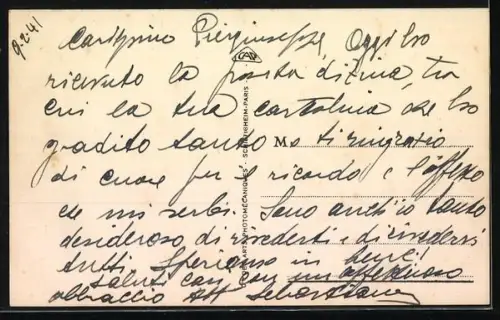 9.2.41
Carissimo Piergiuseppe, Oggi ho
ricevuto la posta di, tra
cui la tua cartolina che ho
gradito tanto M ti ringrazio
di cuore per il ricordo e l'affetto
che mi serbi. Sono anch'io tanto
desideroso di rivederti e di rivedervi
tutti. Speriamo in bene!
Saluti cari con un affettuoso
abbraccio Sebastiano
PARIS